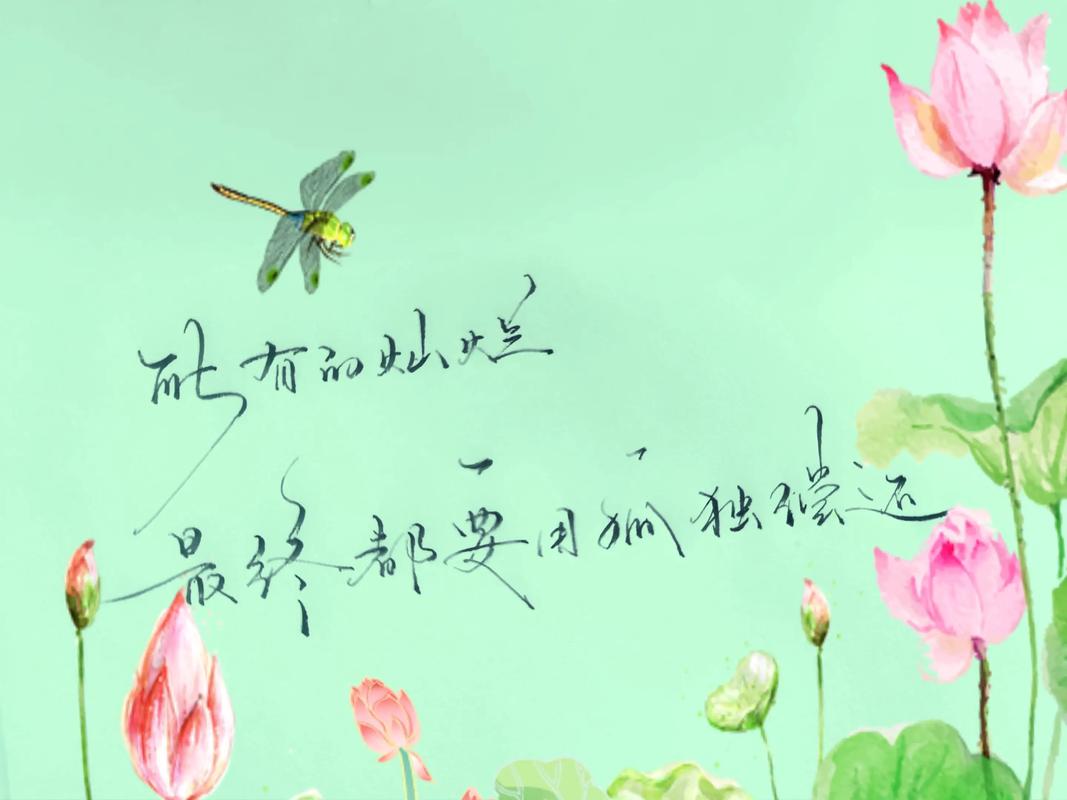 所有的灿烂
最终都要用孤独偿还